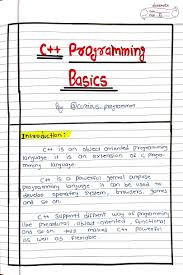 C++ Programming
Basics
By @curious_programmer
Introduction:
C++ is an object oriented programming
language. It is an extension of C progra-
mming language.
C++ is a powerful general purpose
programming language. It can be used to
develop operating system, browsers, games
and so on.
C++ supports different way of programming
like procedural, object-oriented, functional
and so on. This makes C++ powerful
as well as flexible.